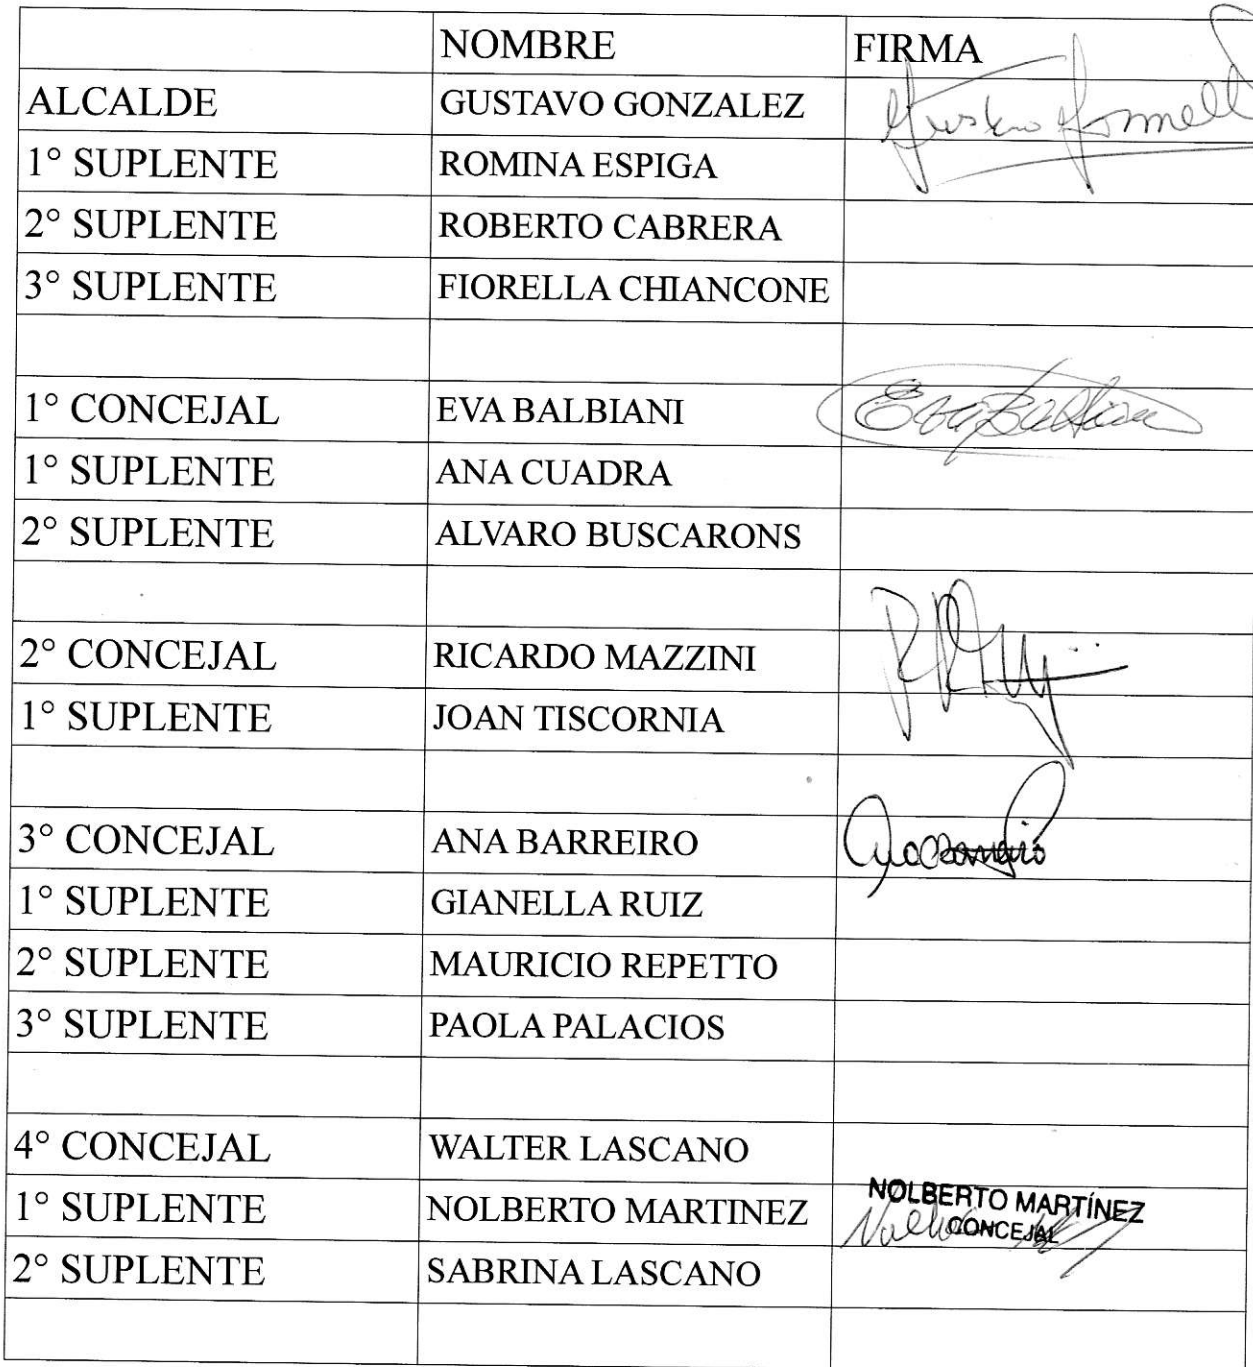 NOMBRE FIRMA
ALCALDE GUSTAVO GONZALEZ
1° SUPLENTE ROMINA ESPIGA
2° SUPLENTE ROBERTO CABRERA
3° SUPLENTE FIORELLA CHIANCONE
1° CONCEJAL EVA BALBIANI
1° SUPLENTE ANA CUADRA
2° SUPLENTE ALVARO BUSCARONS
2° CONCEJAL RICARDO MAZZINI
1° SUPLENTE JOAN TISCORNIA
3° CONCEJAL ANA BARREIRO
1° SUPLENTE GIANELLA RUIZ
2° SUPLENTE MAURICIO REPETTO
3° SUPLENTE PAOLA PALACIOS
4° CONCEJAL WALTER LASCANO
1° SUPLENTE NOLBERTO MARTINEZ NOLBERTO MARTÍNEZ
CONCEJAL
2° SUPLENTE SABRINA LASCANO